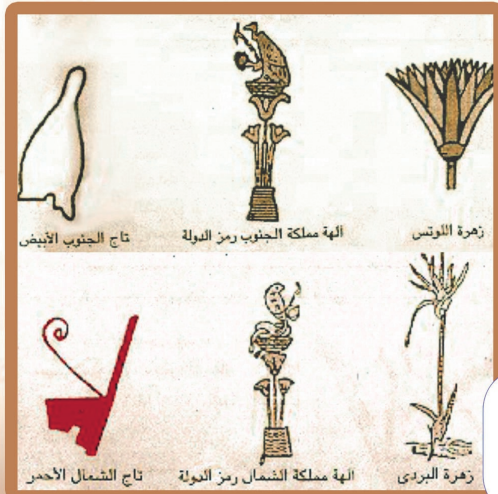 زهرة اللوتس
الهة مملكة الجنوب رمز الدولة
تاج الجنوب الأبيض
زهرة البردى
الهة مملكة الشمال رمز الدولة
تاج الشمال الأحمر